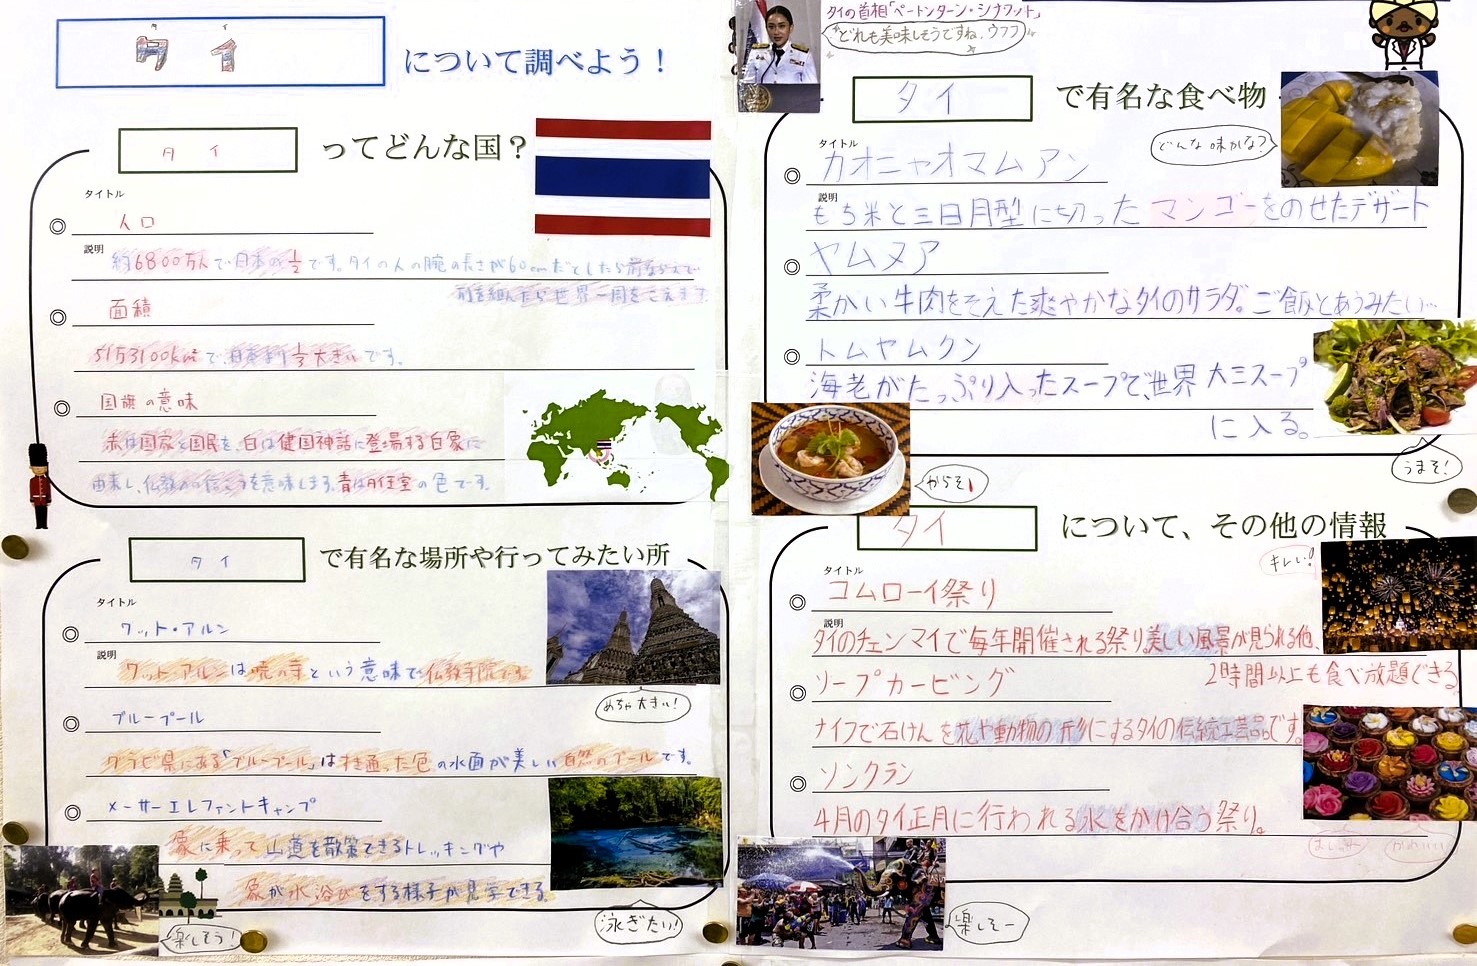 タイ について調べよう！
タイ ってどんな国？
タイトル
◎ 人口
説明
約6800万人で日本の1/2です。タイの人の腕の長さが60cmだとしたら
肩を組んだら世界一周をこえます。
◎ 面積
513100km²で
大きいです。
◎ 国旗の意味
赤は国家と国民を、白は健国神話に登場する白象に
由来し、仏教への信こうを意味します。青はタイ王室の色です。
タイ で有名な場所や行ってみたい所
タイトル
◎ ワット・アルン
説明
ワットアルンは暁の寺という意味で仏教寺院です。
めちゃ大きい！
◎ ブループール
クラビ県にある「ブループール」は すき通った色の水面が美しい自然のプールです。
◎ メーサーエレファントキャンプ
象に乗って山道を散策できるトレッキングや
象が水浴びをする様子が見学できる。
楽しそう！
泳ぎたい！
タイの首相「ペートンターン・シナワット」
どれも美味しそうですね、ウフフ
タイ で有名な食べ物
どんな味かな？
タイトル
◎ カオニャオマムアン
説明
もち米と三日月型に切ったマンゴーをのせたデザート
◎ ヤムヌア
柔かい牛肉をそえた爽やかなタイのサラダ。ご飯とあうみたい…
◎ トムヤムクン
海老がたっぷり入ったスープで、世界大三スープ
に入る。
うまそ！
からそ！
タイ について、その他の情報
キレい！
タイトル
◎ コムローイ祭り
説明
タイのチェンマイで毎年開催される祭り。美しい風景が見られる他、
2時間以上も食べ放題できる
◎ ソープカービング
ナイフで石けんを花や動物の形にするタイの伝統工芸品です。
◎ ソンクラン
4月のタイ正月に行われる水をかけ合う祭り。
かわいい
楽しそー